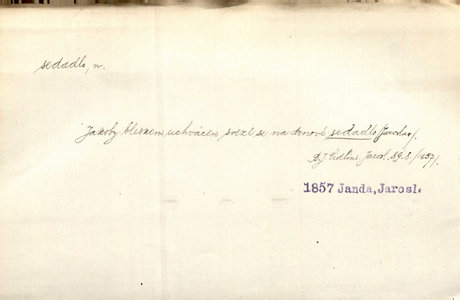 sedadlo, n.
Jakoby bleskem uchvácen, svezl se na drnové sedadlo (Jaroslav).
Jarosl. 29.8. /1857/.
1857 Janda,Jarosl.